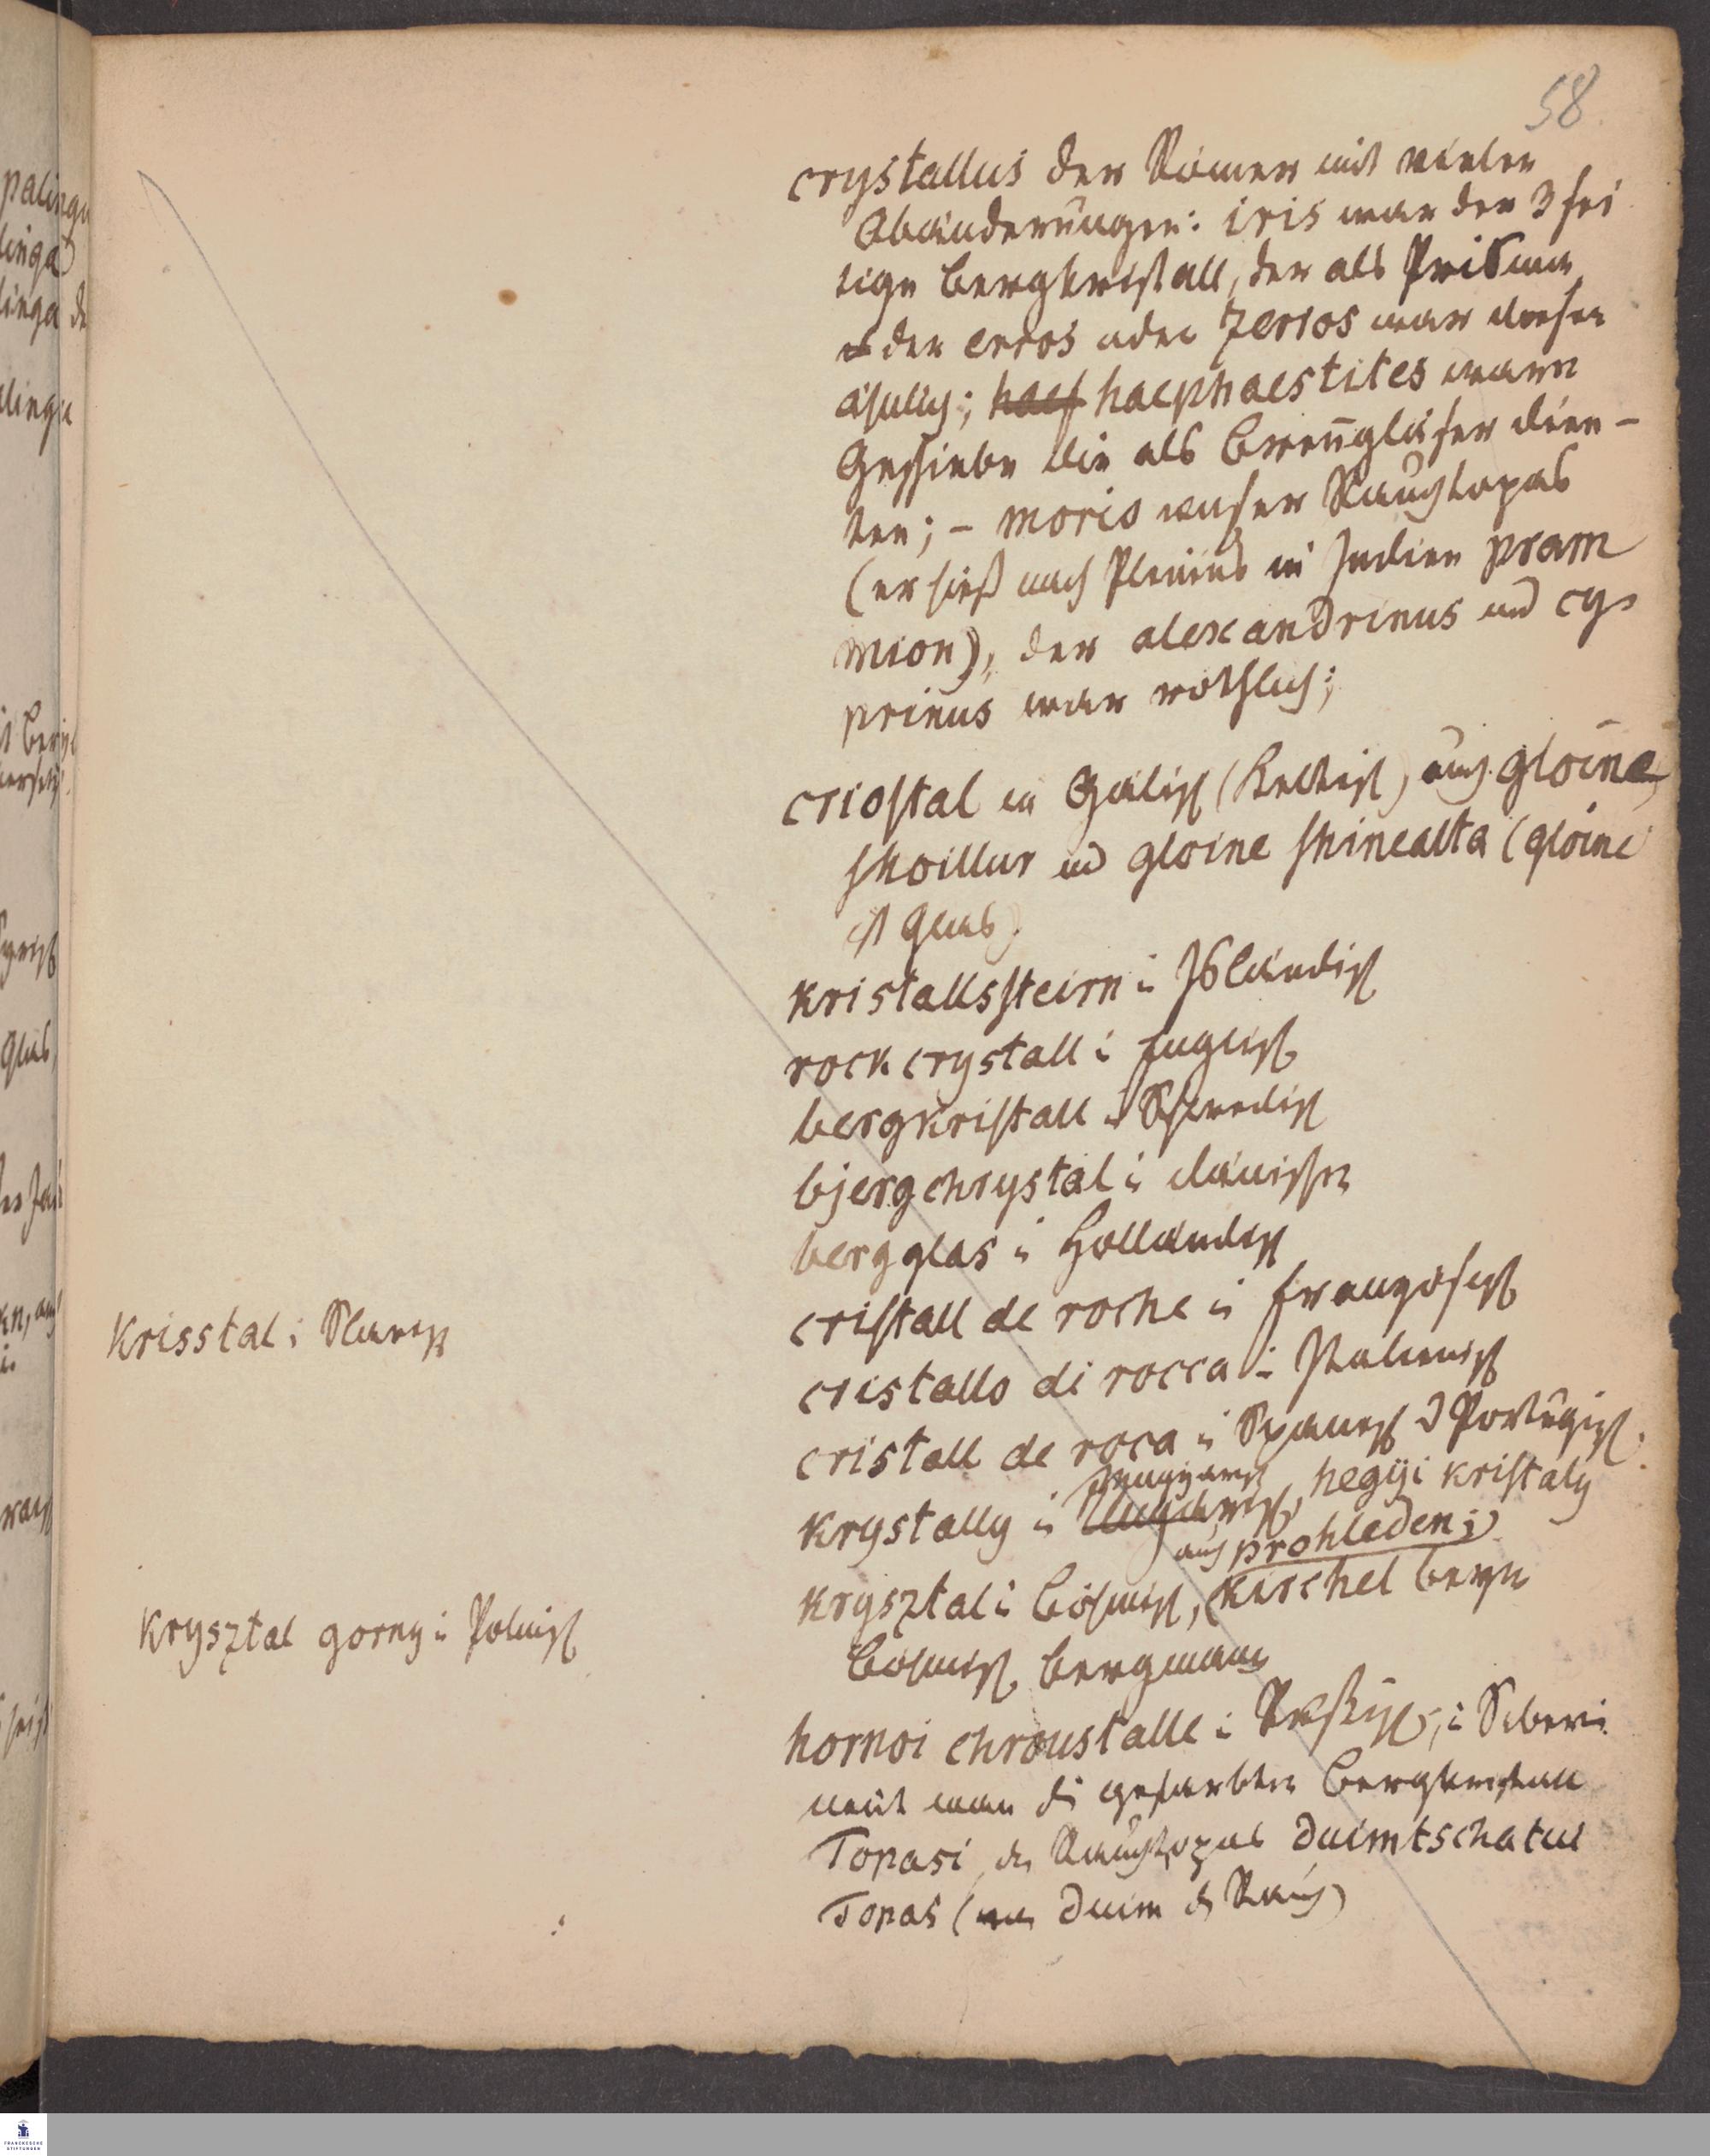 58
crystallus der Römer mit vielen
Abänderungen: iris war der 3 sei
tige Bergkristall, der als Prisma
der erros oder zerros war diesen
ähnlich; haef haephaestites waren
Geschiebe die als Brenngläser dien-
ten; - morio unser Rauchtopas
(er hieß nach Plinius in Indien pram
mion), der alexandrinus und cy-
prinus war rothlich;
criostal in Gälisch (Keltisch) auch gloine
shoillur und gloine shinealta (gloine
ist Glas)
kristallssteirn in Isländisch
rock crystall i Englisch
bergkristall in Schwedisch
bjergchrystal in dänischen
bergglas in Holländisch
cristall de roche in französisch
Krisstal i Slavisch
cristallo di rocca in Italienisch
cristall de roca in Spanisch & Portugisisch
krystally in Ungarisch, hegyi kristaly
auch prohleden;
krysztal in böhmisch, (kischel beym
Krysztal gorny in Polnisch
böhmisch Bergmann
hornoi chroustalle in Russisch, in Siberi
nent man die gefärbten Bergkristall
Topasi, der Rauchtopas Duimtschatui
Topas (von Duim der Rauch)
FRANCKESCHE
STIFTUNGEN